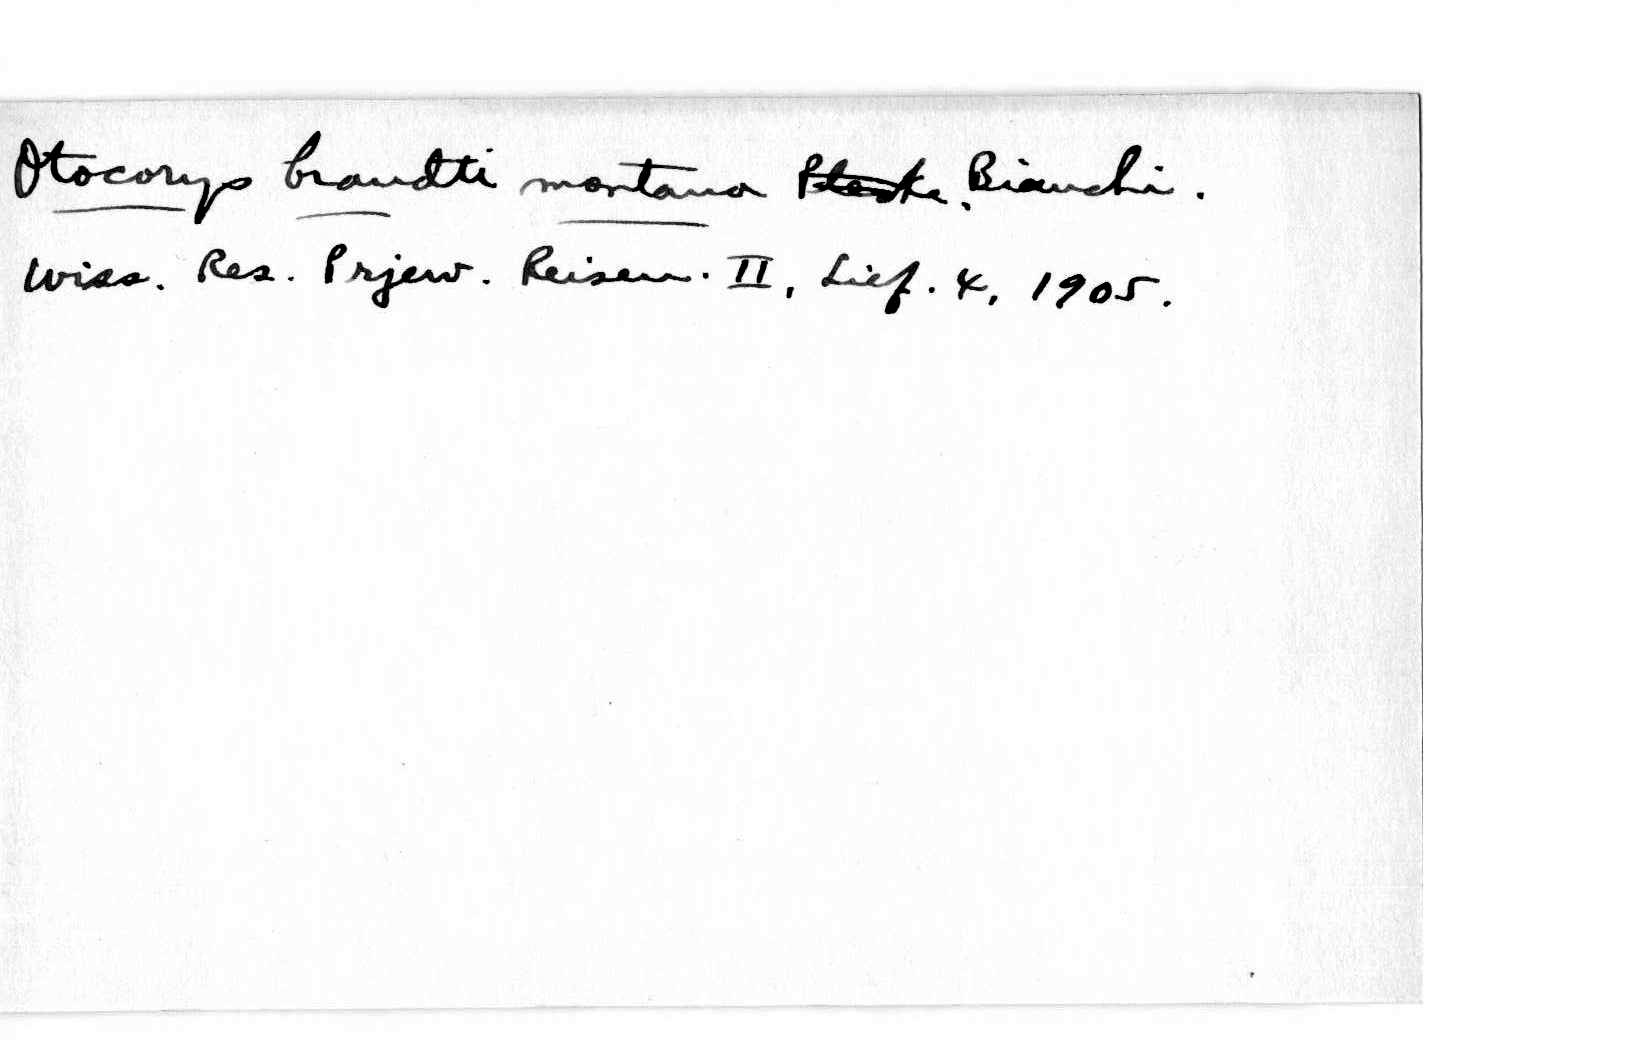 Otocorys brandti montana Pleske. Bianchi.
Wiss. Res. Prjew. Reisen. II, Lief. 4, 1905.